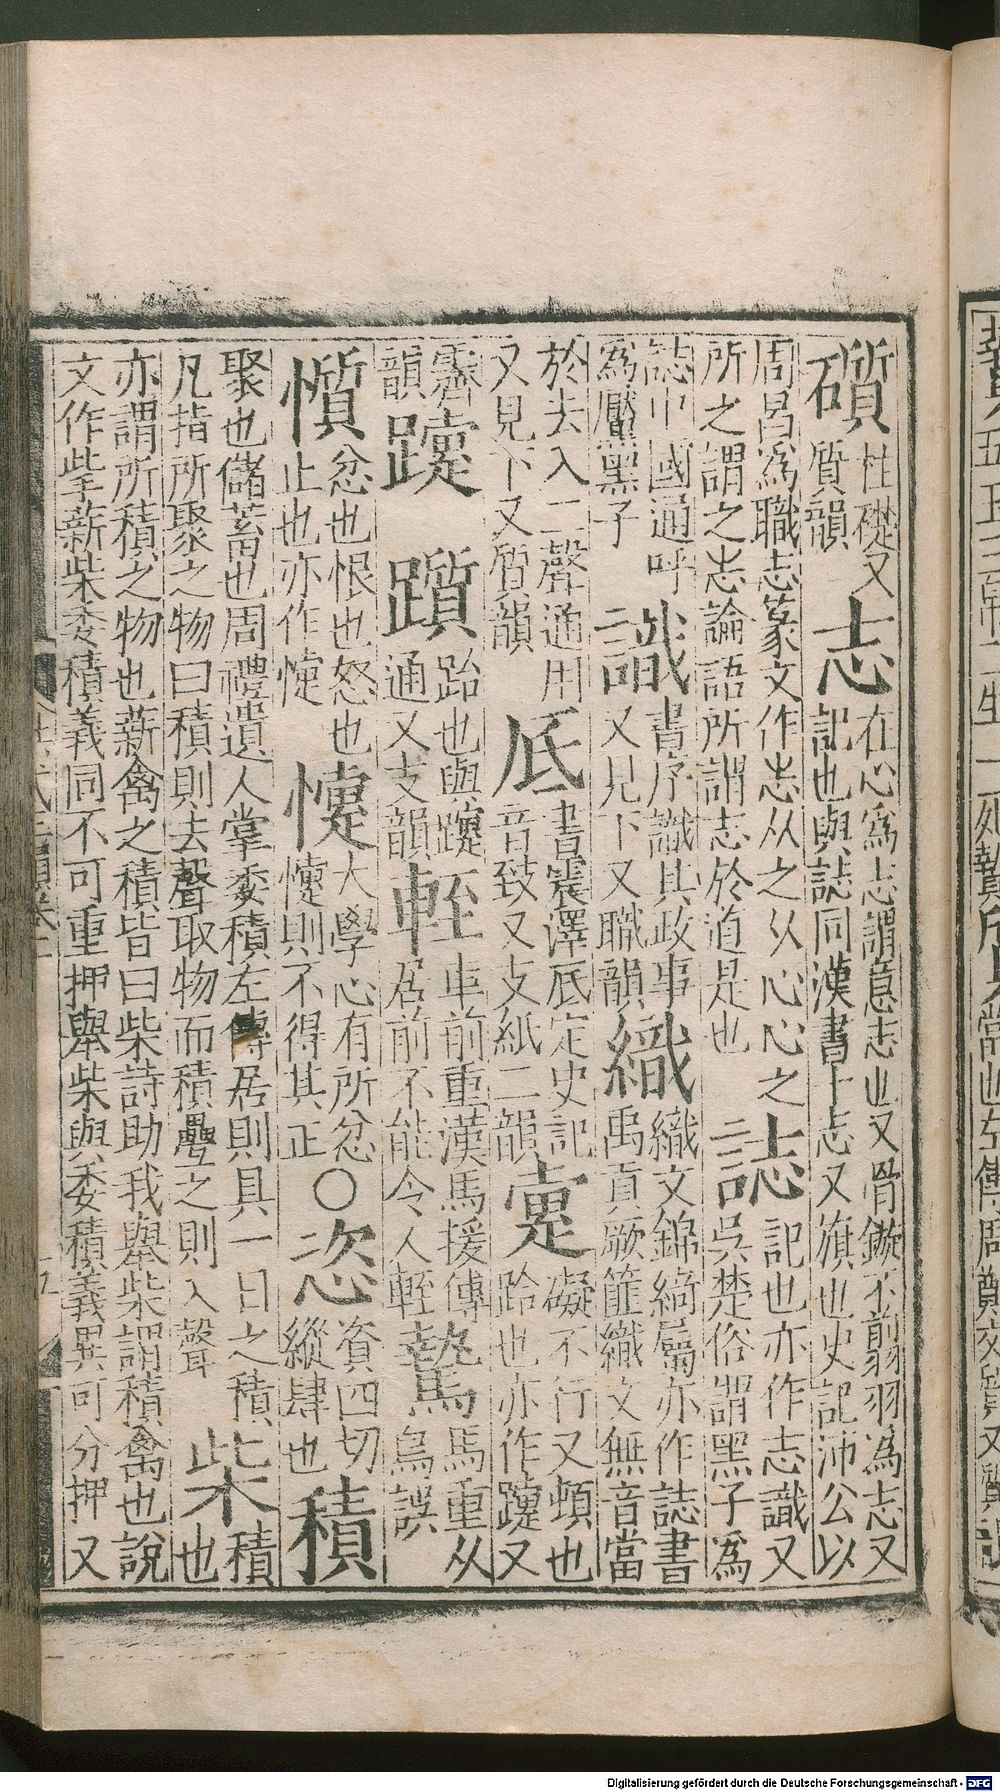 礩柱礎又
質韻
志在心爲志謂意志也又骨鏃不翦羽爲志又
記也與誌同漢書十志又旗也史記沛公以
周昌爲職志篆文作志从之从心心之
所之謂之志論語所謂志於道是也
誌記也亦作志識又
吳楚俗謂黑子爲
誌中國通呼
爲黶黑子
識書序識其政事
又見下又職韻
織織文錦綺屬亦作誌書
禹貢厥篚織文無音當
於去入二聲通用
又見下又質韻
底書震澤底定史記
音致又支紙二韻
疐礙不行又頓也
跲也亦作躓又
霽
韻
躓跲也與疐
通又支韻
輊車前重漢馬援傳
居前不能令人輊
騺馬重从
烏誤
懫忿也恨也怒也
止也亦作懥
懥大學心有所忿
懥則不得其正
○恣資四切
縱肆也
積
聚也儲蓄也周禮遺人掌委積左傳居則具一日之積
凡指所聚之物曰積則去聲取物而積疊之則入聲
柴積
也
亦謂所積之物也薪禽之積皆曰柴詩助我舉柴謂積禽也說
文作㧘薪柴委積義同不可重押舉柴與委積義異可分押又
Digitalisierung gefördert durch die Deutsche Forschungsgemeinschaft - DFG